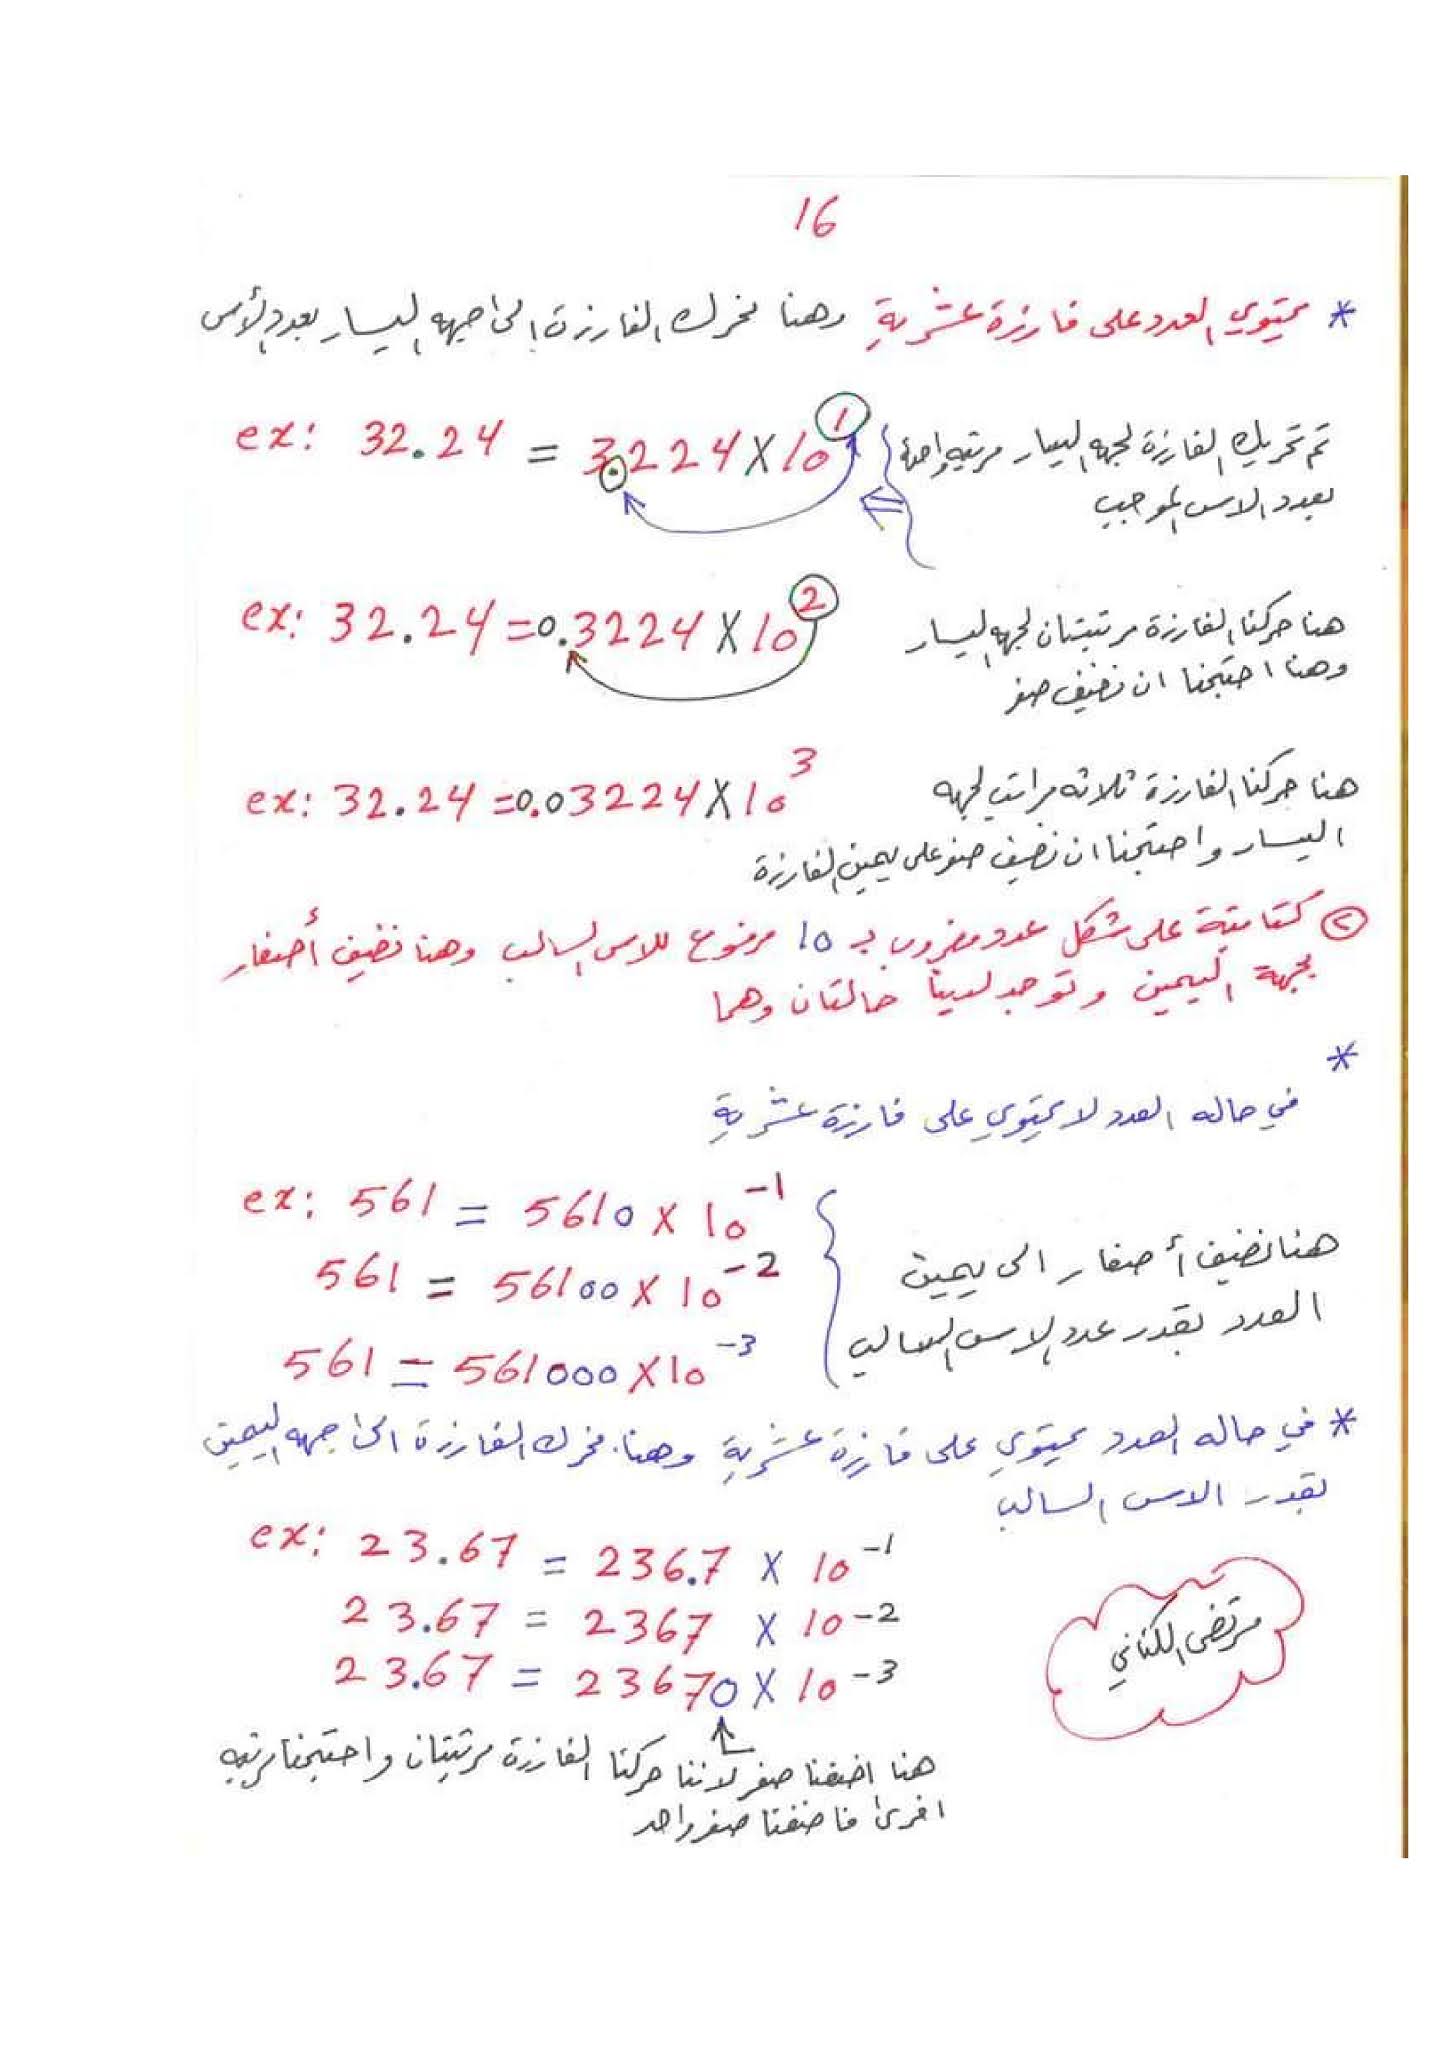 16
* يحتوي العدد على فارزة عشرية وهنا نحرك الفارزة الى جهه اليسار بعدد الأس
ex: 32.24 = 3.224 X 10^1
تم تحريك الفارزة لجهه اليسار مرتبه واحدة
بعدد الاس الموجب
ex: 32.24 = 0.3224 X 10^2
هنا حركنا الفارزة مرتبتان لجهه اليسار
وهنا احتجنا ان نضيف صفر
ex: 32.24 = 0.03224 X 10^3
هنا حركنا الفارزة ثلاثه مراتب لجهه
اليسار واحتجنا ان نضيف صفر على يمين الفارزة
② كتابتة على شكل عدد مضروب بـ 10 مرفوع للاس السالب وهنا نضيف أصفار
لجهة اليمين وتوجد لدينا حالتان وهما
*
في حاله العدد لا يحتوي على فارزة عشرية
ex: 561 = 5610 X 10^-1
561 = 56100 X 10^-2
561 = 561000 X 10^-3
هنا نضيف أصفار الى يمين
العدد بقدر عدد الاس السالب
* في حاله العدد يحتوي على فارزة عشرية وهنا نحرك الفارزة الى جهه اليمين
بقدر الاس السالب
ex: 23.67 = 236.7 X 10^-1
23.67 = 2367 X 10^-2
23.67 = 23670 X 10^-3
مرتضى الكناني
هنا اضفنا صفر لاننا حركنا الفارزة مرتبتان واحتجنا مرتبه
اخرى فاضفنا صفر واحد